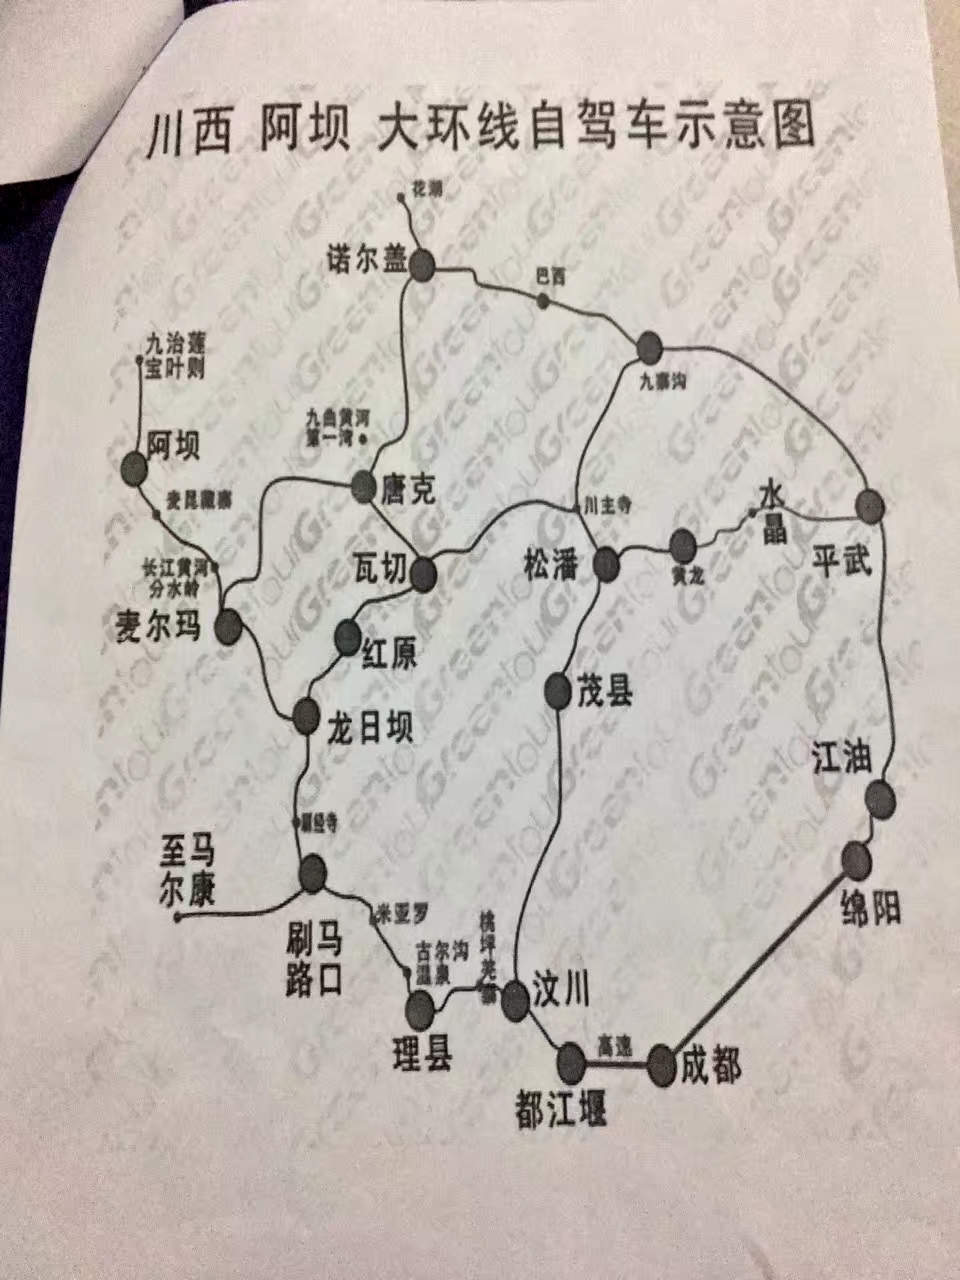 川西 阿坝 大环线自驾车示意图
花湖
诺尔盖
巴西
九治莲
宝叶则
九寨沟
九曲黄河
第一湾
阿坝
唐克
麦昆藏寨
川主寺
水
晶
长江黄河
分水岭
瓦切
松潘
黄龙
平武
麦尔玛
红原
茂县
龙日坝
江油
刷经寺
至马
尔康
米亚罗
绵阳
刷马
路口
古尔沟
温泉
桃
坪
羌
寨
汶川
理县
高速
成都
都江堰
Greentour